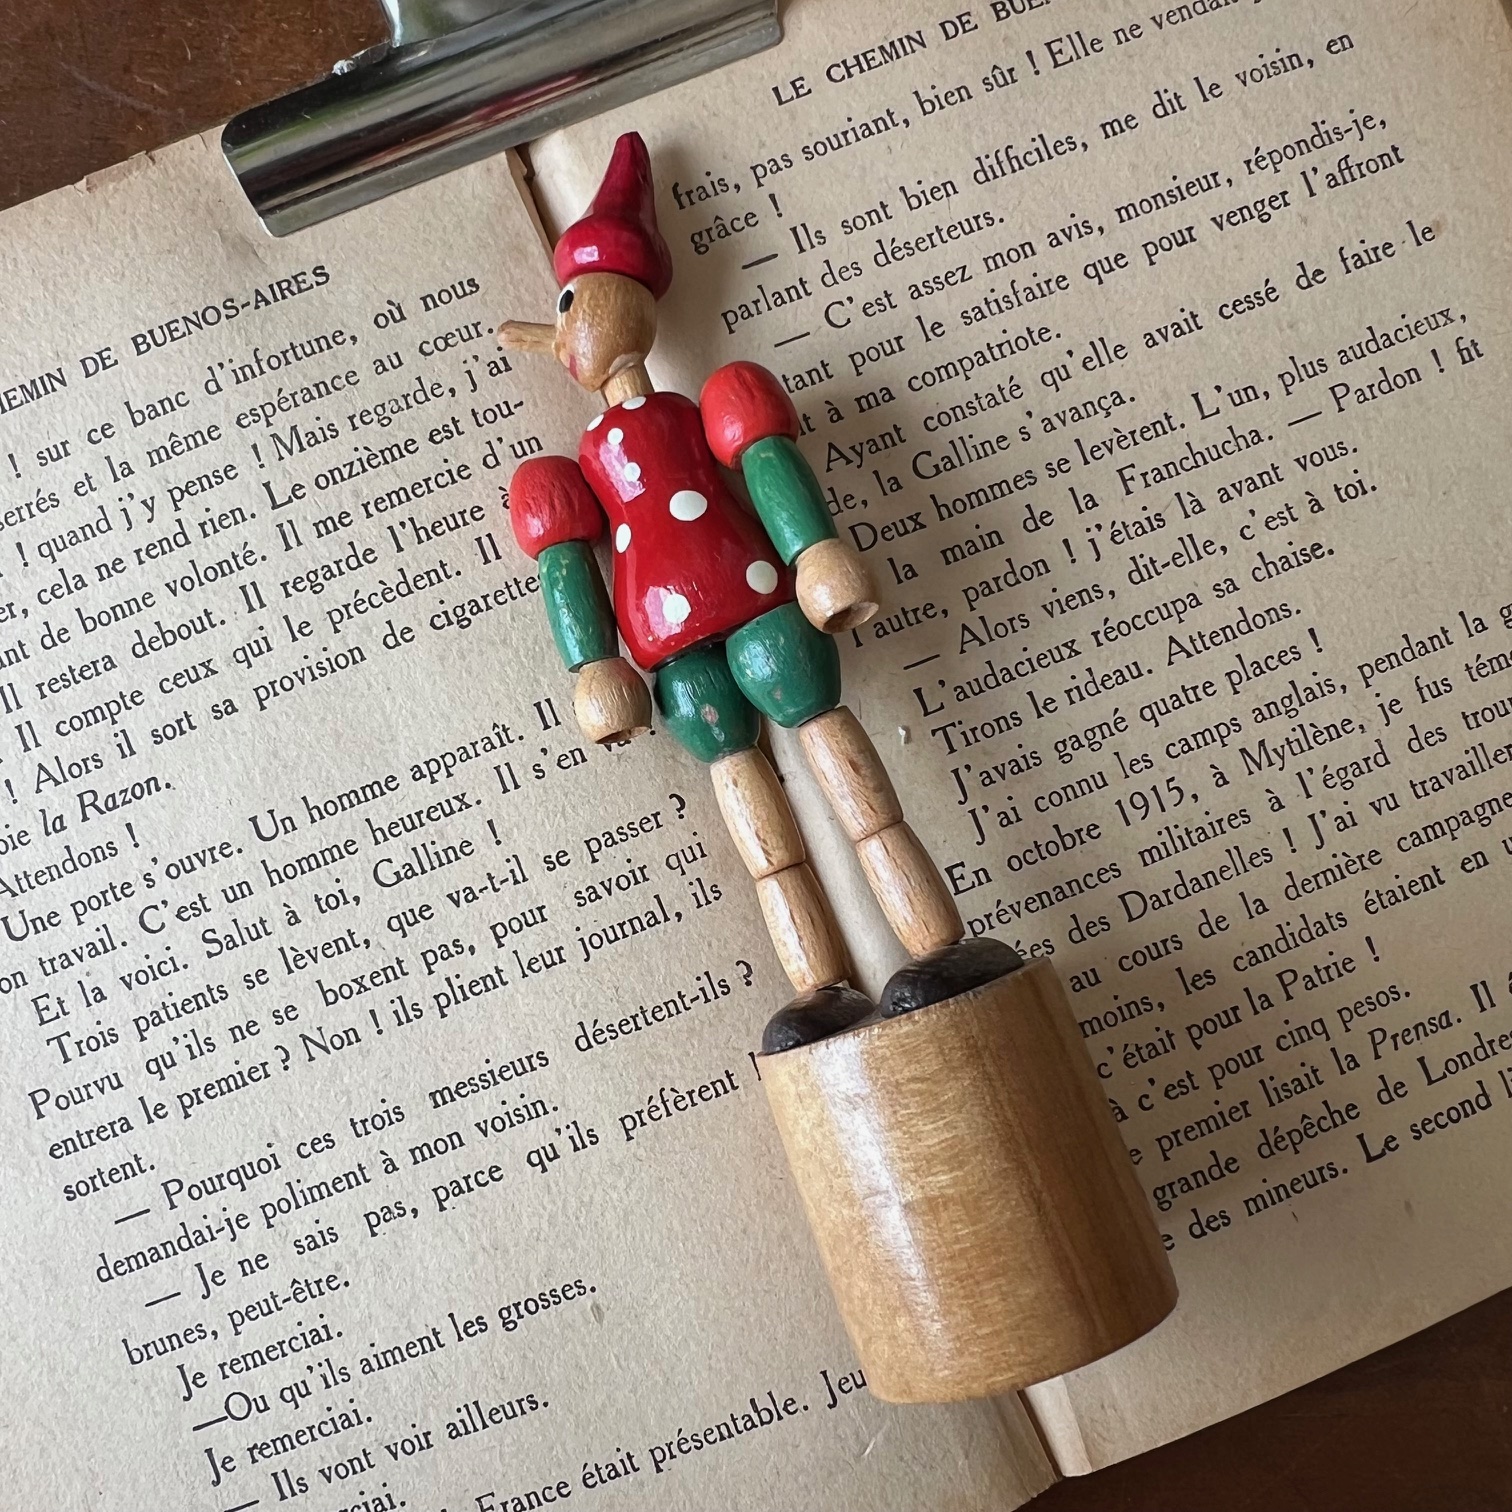 CHEMIN DE BUENOS-AIRES
! sur ce banc d'infortune, où nous
serrés et la même espérance au cœur.
! quand j'y pense ! Mais regarde, j'ai
cela ne rend rien. Le onzième est tou-
de bonne volonté. Il me remercie d'un
Il restera debout. Il regarde l'heure à
Il compte ceux qui le précèdent. Il
! Alors il sort sa provision de cigarettes
la Razon.
Attendons !
Une porte s'ouvre. Un homme apparaît. Il
travail. C'est un homme heureux. Il s'en va !
Et la voici. Salut à toi, Galline !
Trois patients se lèvent, que va-t-il se passer ?
Pourvu qu'ils ne se boxent pas, pour savoir qui
entrera le premier ? Non ! ils plient leur journal, ils
sortent.
— Pourquoi ces trois messieurs désertent-ils ?
demandai-je poliment à mon voisin.
— Je ne sais pas, parce qu'ils préfèrent
brunes, peut-être.
Je remerciai.
—Ou qu'ils aiment les grosses.
Je remerciai.
— Ils vont voir ailleurs.
France était présentable. Jeu
LE CHEMIN DE
frais, pas souriant, bien sûr ! Elle ne vendait
grâce !
— Ils sont bien difficiles, me dit le voisin, en
parlant des déserteurs.
— C'est assez mon avis, monsieur, répondis-je,
tant pour le satisfaire que pour venger l'affront
à ma compatriote.
Ayant constaté qu'elle avait cessé de faire le
la Galline s'avança.
Deux hommes se levèrent. L'un, plus audacieux,
la main de la Franchucha. — Pardon ! fit
l'autre, pardon ! j'étais là avant vous.
— Alors viens, dit-elle, c'est à toi.
L'audacieux réoccupa sa chaise.
Tirons le rideau. Attendons.
J'avais gagné quatre places !
J'ai connu les camps anglais, pendant la
En octobre 1915, à Mytilène, je fus
prévenances militaires à l'égard des
des Dardanelles ! J'ai vu travailler
au cours de la dernière campagne
moins, les candidats étaient en
c'était pour la Patrie !
à c'est pour cinq pesos.
premier lisait la Prensa. Il
grande dépêche de Londres
des mineurs. Le second